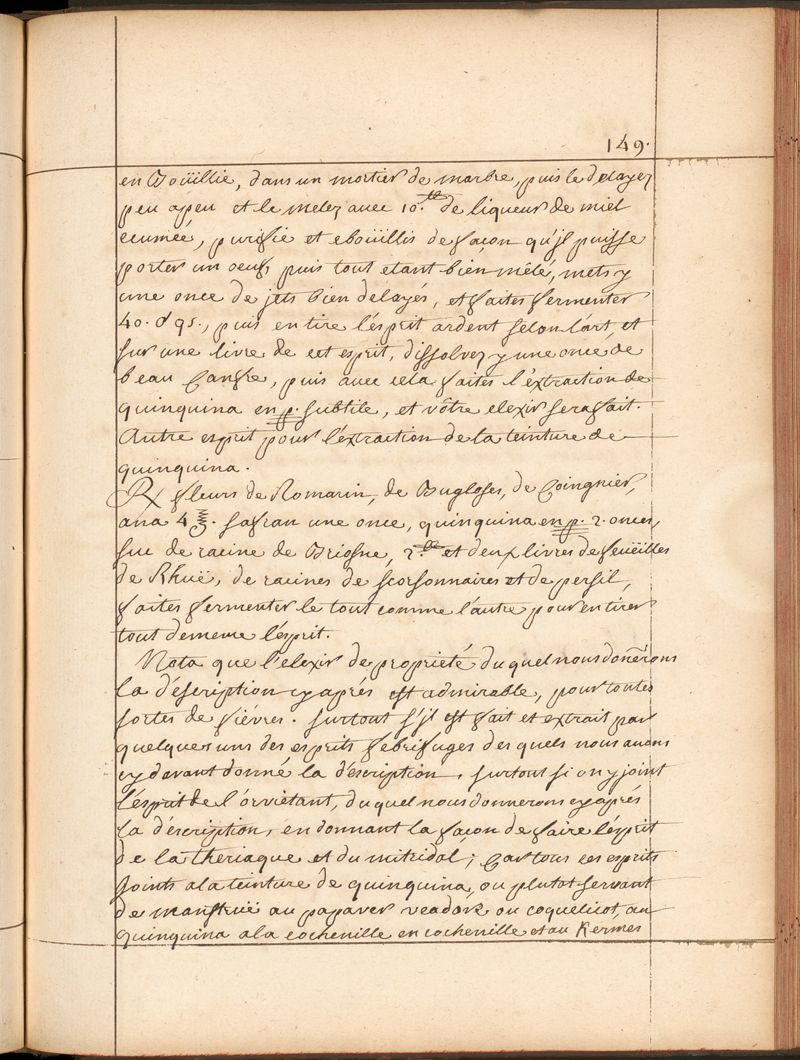 149.
en Boüillie, dans un mortier de marbre, puis le delayez
peu apeu et le melez avec 10.lb de liqueur de miel
ecumée, purifie et eboüillis de façon qu'jl puisse
porter un oeuf, puis tout etant bien mêlé, mets y
une once de jets bien delayés, et faites fermenter
40. d 95., puis en tire l'ésprit ardent selon l'art, et
sur une livre de cet esprit, dissolvez y une once de
beau Canfre, puis avec cela faites l'éxtraction de
quinquina en p. subtile, et vôtre elexir sera fait.
Autre esprit pour l'éxtraction de la teinture de
quinquina.
Rx fleurs de Romarin, de Buglose, de Coingnier,
ana 4 ℥. safran une once, quinquina en p. 2. onces,
suc de racine de Briogne, 2.lb et deux livres de feüeilles
de Rhuë, de racines de scorsonnaires et de persil,
faites fermenter le tout comme l'autre pour en tirer
tout dememe l'ésprit.
Nota que l'elexir de proprieté du quel nous donnerons
la déscription cy aprés est admirable, pour toutes
sortes de fiévres. surtout s'jl est fait et extrait par
quelques uns des esprits febrifuges des quels nous avons
cy davant donné la déscription, surtout si on y joint
l'ésprit de l'orviétant, du quel nous donnerons cy aprés
la déscription, en donnant la façon de faire l'ésprit
de la theriaque et du mitridal; Car tous ces esprits
joints a la teinture de quinquina, ou plutot servant
de manstruë au papaver readox ou coquelicot, au
quinquina a la cochenille en cochenille et au Kermes